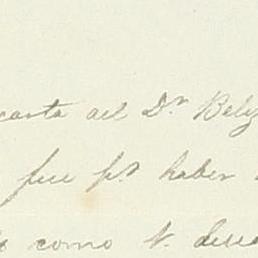 carta del Dr Bely
fue pr haber
como V. desea